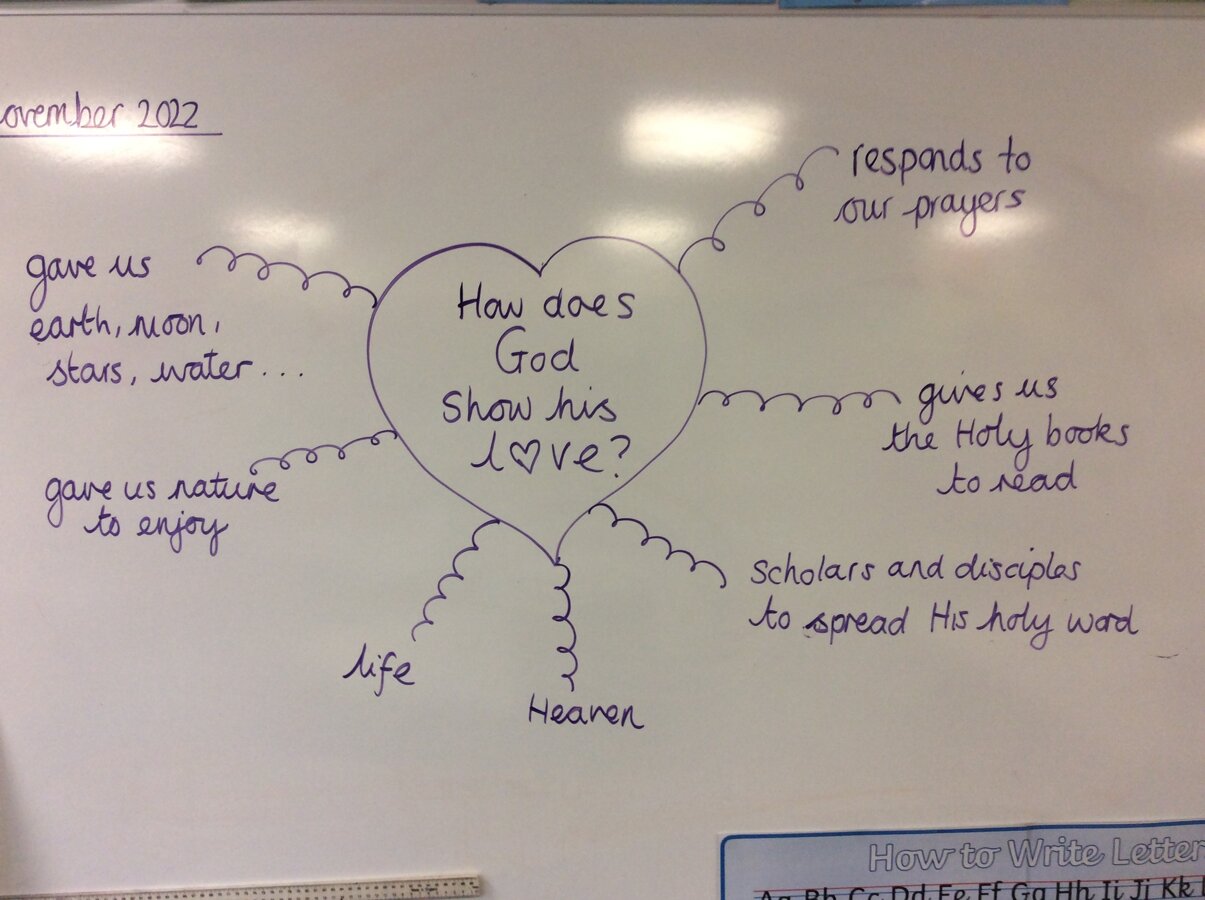 ovember 2022
responds to
our prayers
gave us
earth, moon,
stars, water...
How does
God
Show his
l♡ve?
gives us
the Holy books
to read
gave us nature
to enjoy
scholars and disciples
to spread His holy word
life
Heaven
How to Write Letter
Aa Bb Cc Dd Ee Ff Gg Hh Ii Jj Kk